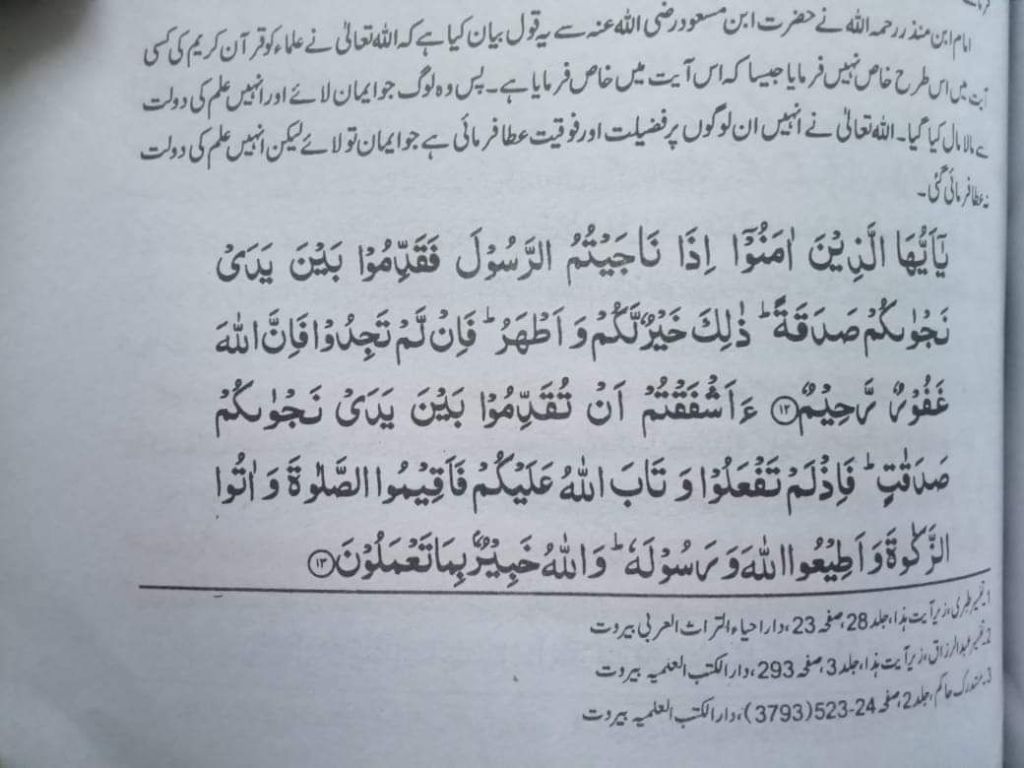 امام ابن منذر رحمہ اللہ نے حضرت ابن مسعود رضی اللہ عنہ سے یہ قول بیان کیا ہے کہ اللہ تعالیٰ نے علماء کو قرآن کریم کی کسی
آیت میں اس طرح خاص نہیں فرمایا جیسا کہ اس آیت میں خاص فرمایا ہے۔ پس وہ لوگ جو ایمان لائے اور انہیں علم کی دولت
سے مالا مال کیا گیا۔ اللہ تعالیٰ نے انہیں ان لوگوں پر فضیلت اور فوقیت عطا فرمائی ہے جو ایمان تو لائے لیکن انہیں علم کی دولت
نہ عطا فرمائی گئی۔
يٰۤاَيُّهَا الَّذِيْنَ اٰمَنُوْۤا اِذَا نَاجَيْتُمُ الرَّسُوْلَ فَقَدِّمُوْا بَيْنَ يَدَيْ
نَجْوٰىكُمْ صَدَقَةً ؕ ذٰلِكَ خَيْرٌ لَّكُمْ وَ اَطْهَرُ ؕ فَاِنْ لَّمْ تَجِدُوْا فَاِنَّ اللّٰهَ
غَفُوْرٌ رَّحِيْمٌ ۝۱۲ ءَاَشْفَقْتُمْ اَنْ تُقَدِّمُوْا بَيْنَ يَدَيْ نَجْوٰىكُمْ
صَدَقٰتٍ ؕ فَاِذْ لَمْ تَفْعَلُوْا وَ تَابَ اللّٰهُ عَلَيْكُمْ فَاَقِيْمُوا الصَّلٰوةَ وَ اٰتُوا
الزَّكٰوةَ وَ اَطِيْعُوا اللّٰهَ وَ رَسُوْلَهٗ ؕ وَ اللّٰهُ خَبِيْرٌۢ بِمَا تَعْمَلُوْنَ ۝۱۳
1۔ تفسیر طبری، زیر آیت ہذا، جلد 28، صفحہ 23، دار احیاء التراث العربی بیروت
2۔ تفسیر عبدالرزاق، زیر آیت ہذا، جلد 3، صفحہ 293، دار الکتب العلمیہ بیروت
3۔ مستدرک حاکم، جلد 2، صفحہ 24-523 (3793)، دار الکتب العلمیہ بیروت